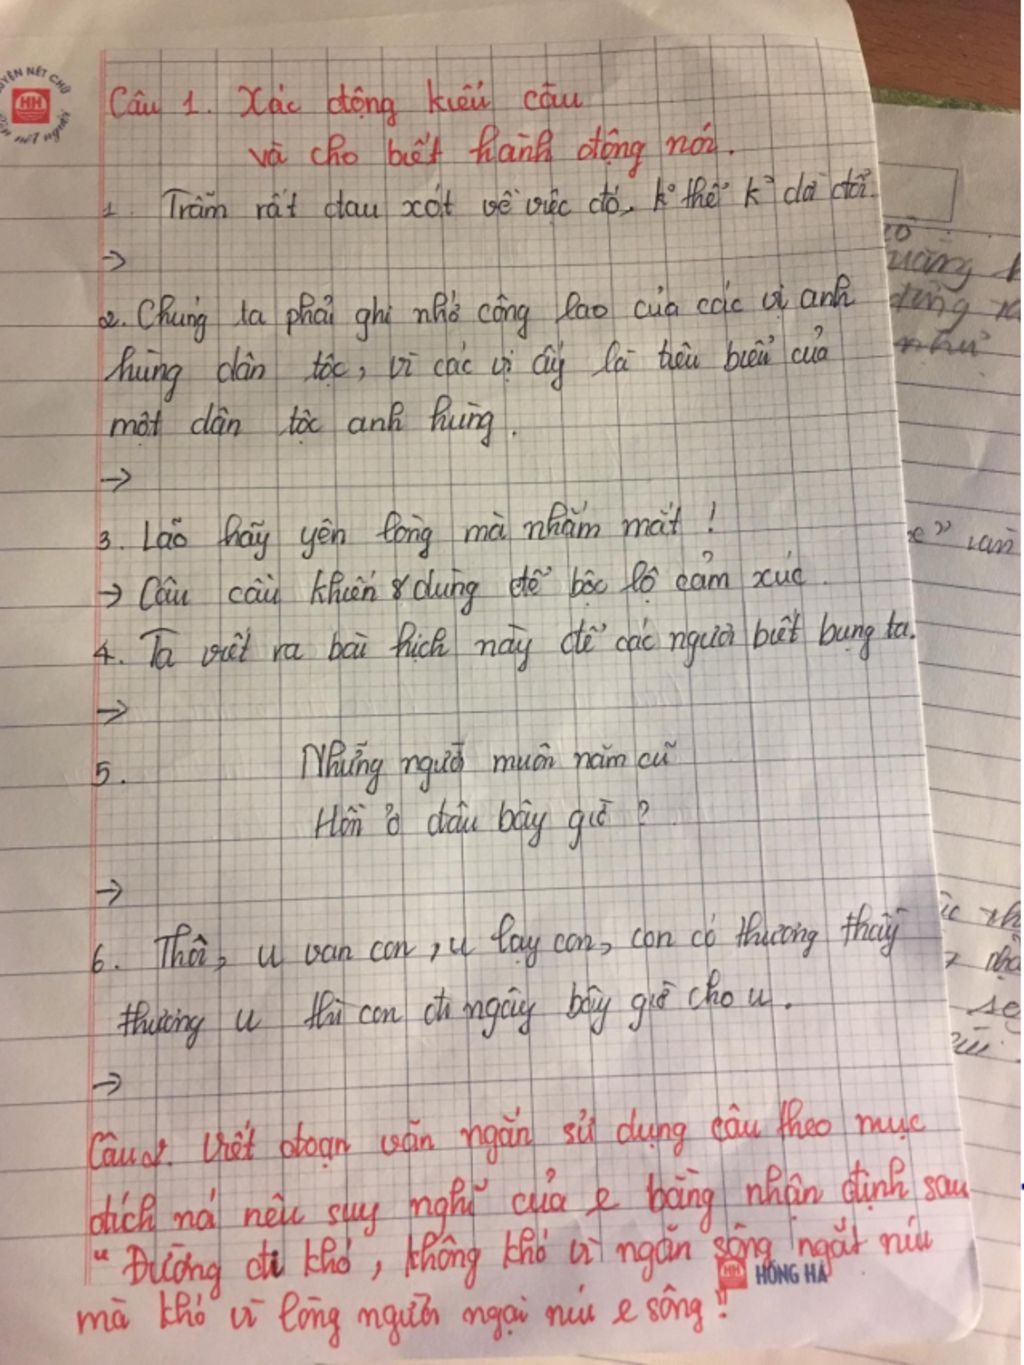 Câu 1. Xác động kiểu câu
và cho biết hành động nói.
1. Trẫm rất đau xót về việc đó, k° thể k° dời đổi.
→
2. Chúng ta phải ghi nhớ công lao của các vị anh
hùng dân tộc, vì các vị ấy là tiêu biểu của
một dân tộc anh hùng.
→
3. Lão hãy yên lòng mà nhắm mắt!
→ Câu cầu khiến & dùng để bộc lộ cảm xúc.
4. Ta viết ra bài hịch này để các người biết bụng ta.
→
5. Những người muôn năm cũ
Hồn ở đâu bây giờ?
→
6. Thôi, u van con, u lạy con, con có thương thầy
thương u thì con đi ngay bây giờ cho u.
→
Câu 2. Viết đoạn văn ngắn sử dụng câu theo mục
đích nói nêu suy nghĩ của e bằng nhận định sau
"Đường đi khó, không khó vì ngăn sông ngắt núi
mà khó vì lòng người ngại núi e sông!"
HH HỒNG HÀ
HH